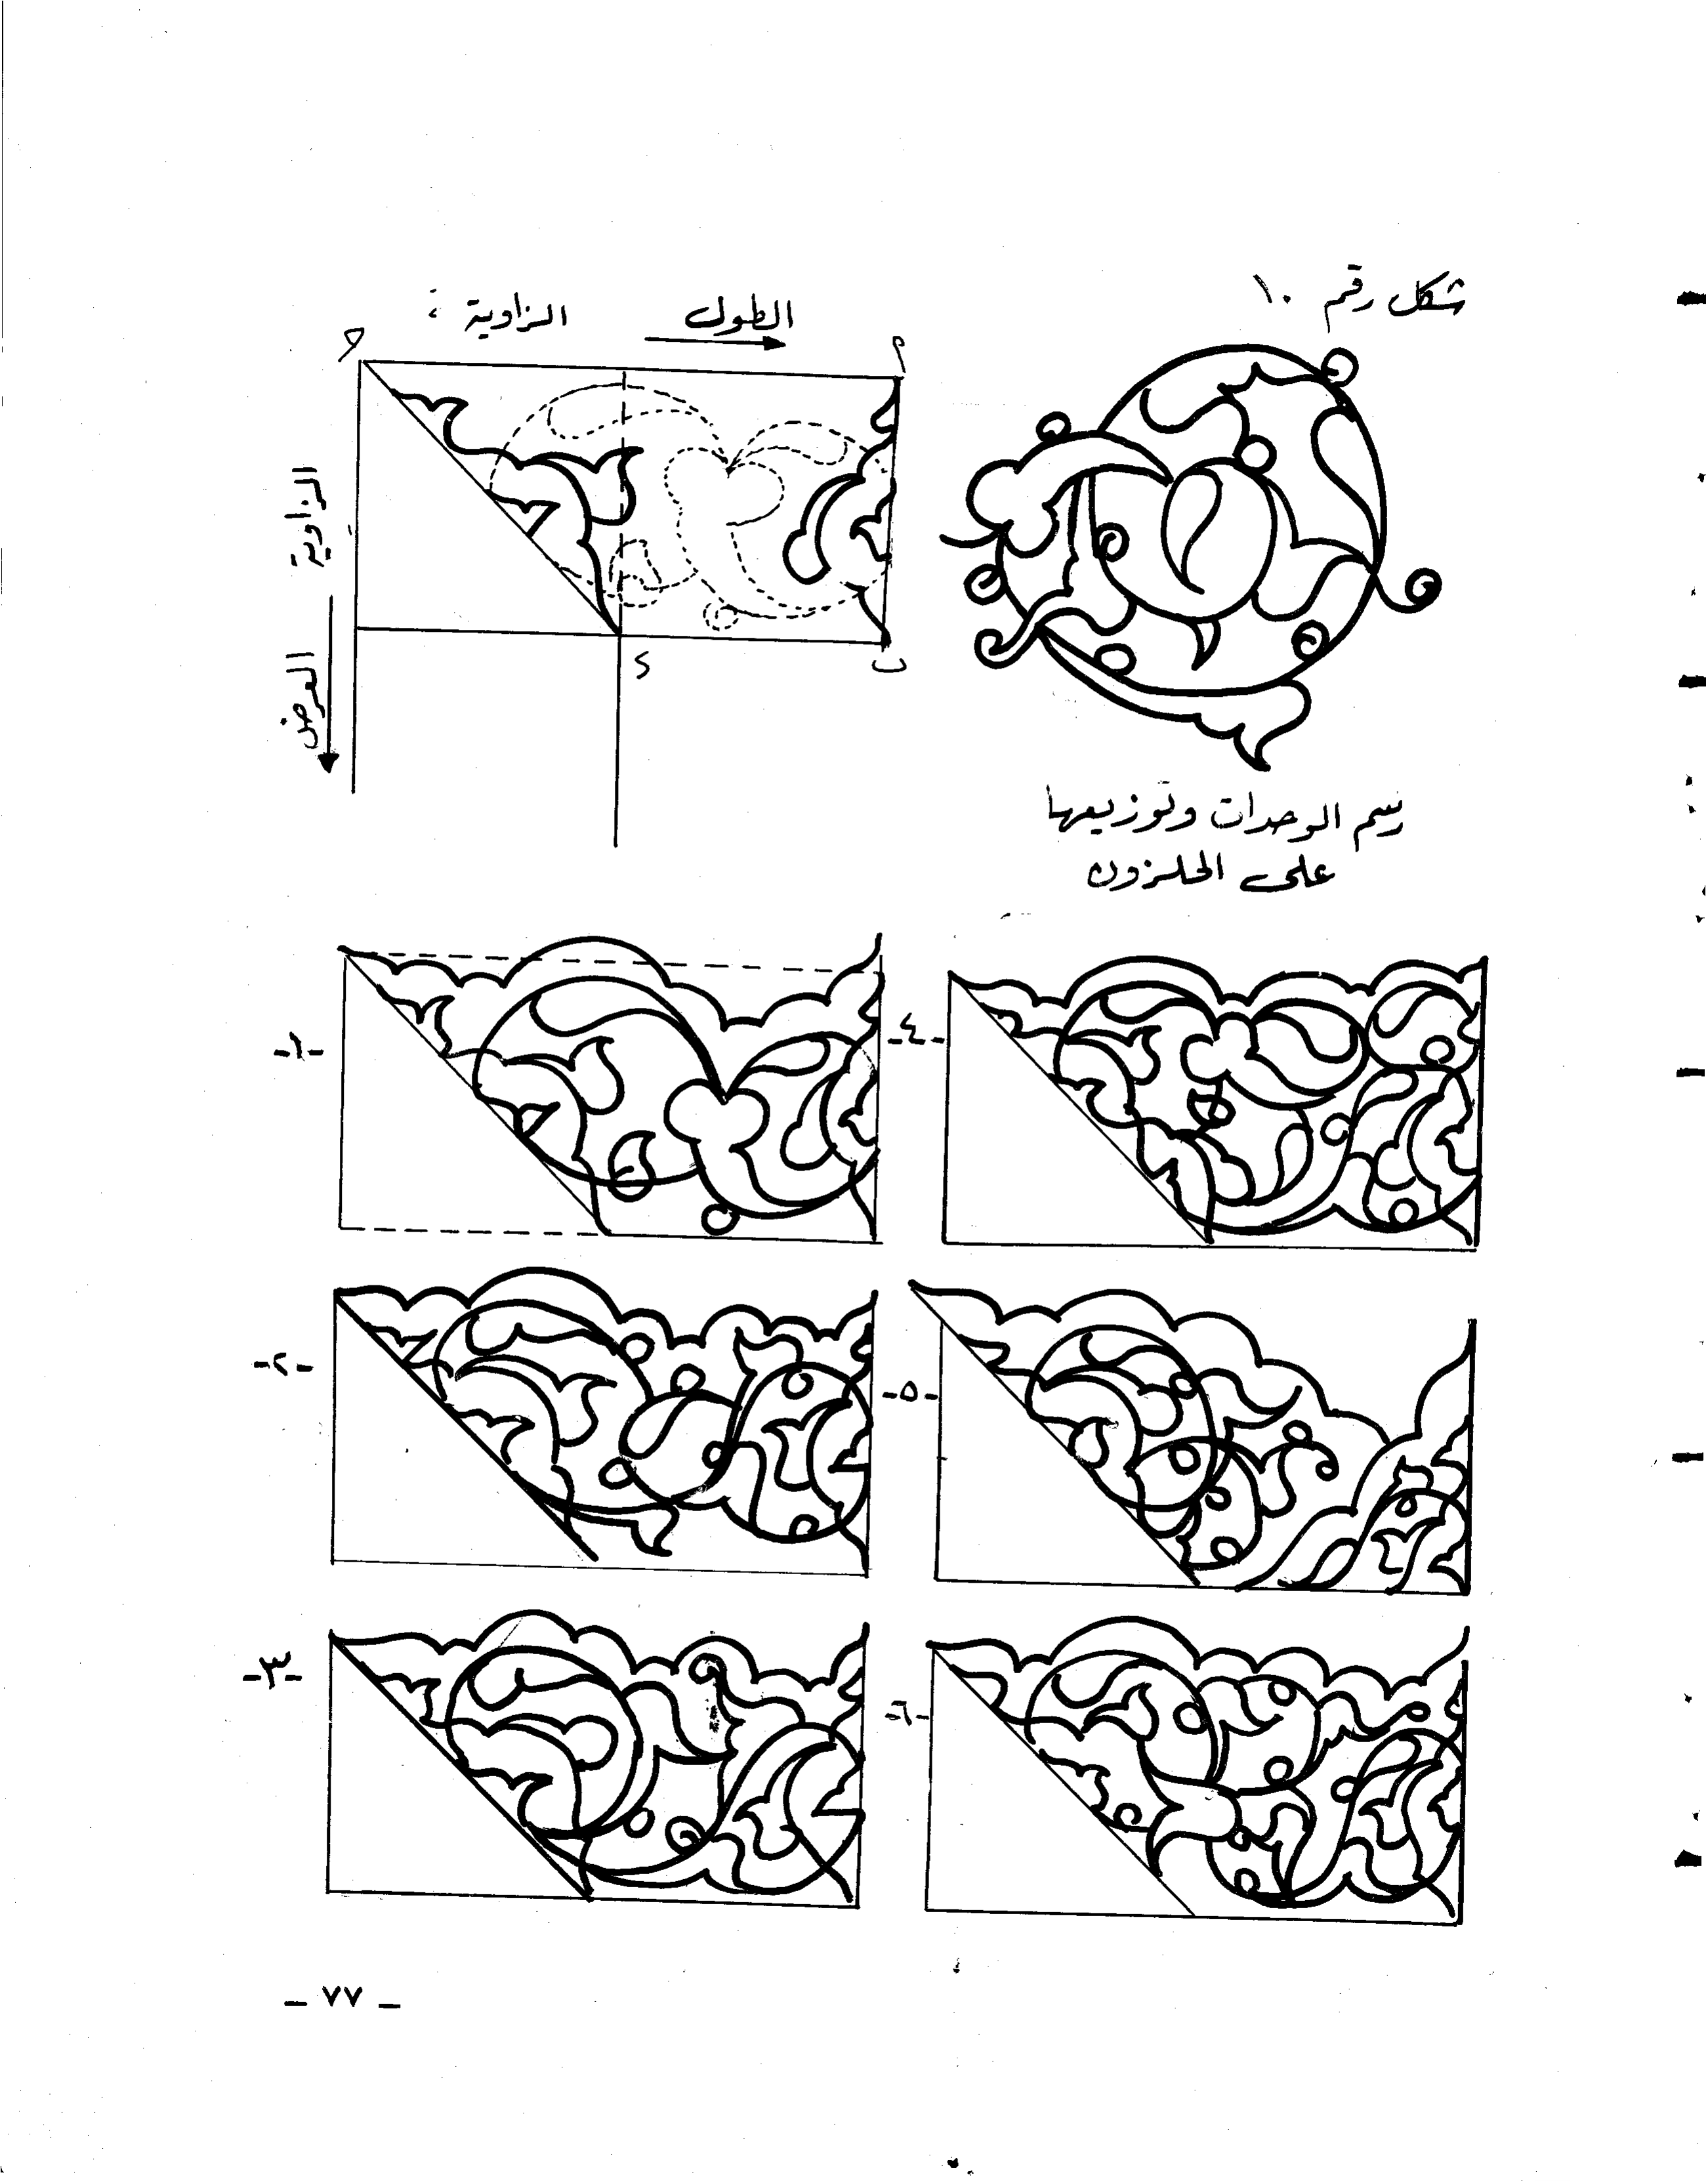 شكل رقم ١٠
الطول الزاوية :
م
ب
د
الزاوية
العرض
رسم الوحدات وتوزيعها
على الحلزون
-١-
-٤-
-٢-
-٥-
-٣-
-٦-
- ٧٧ -